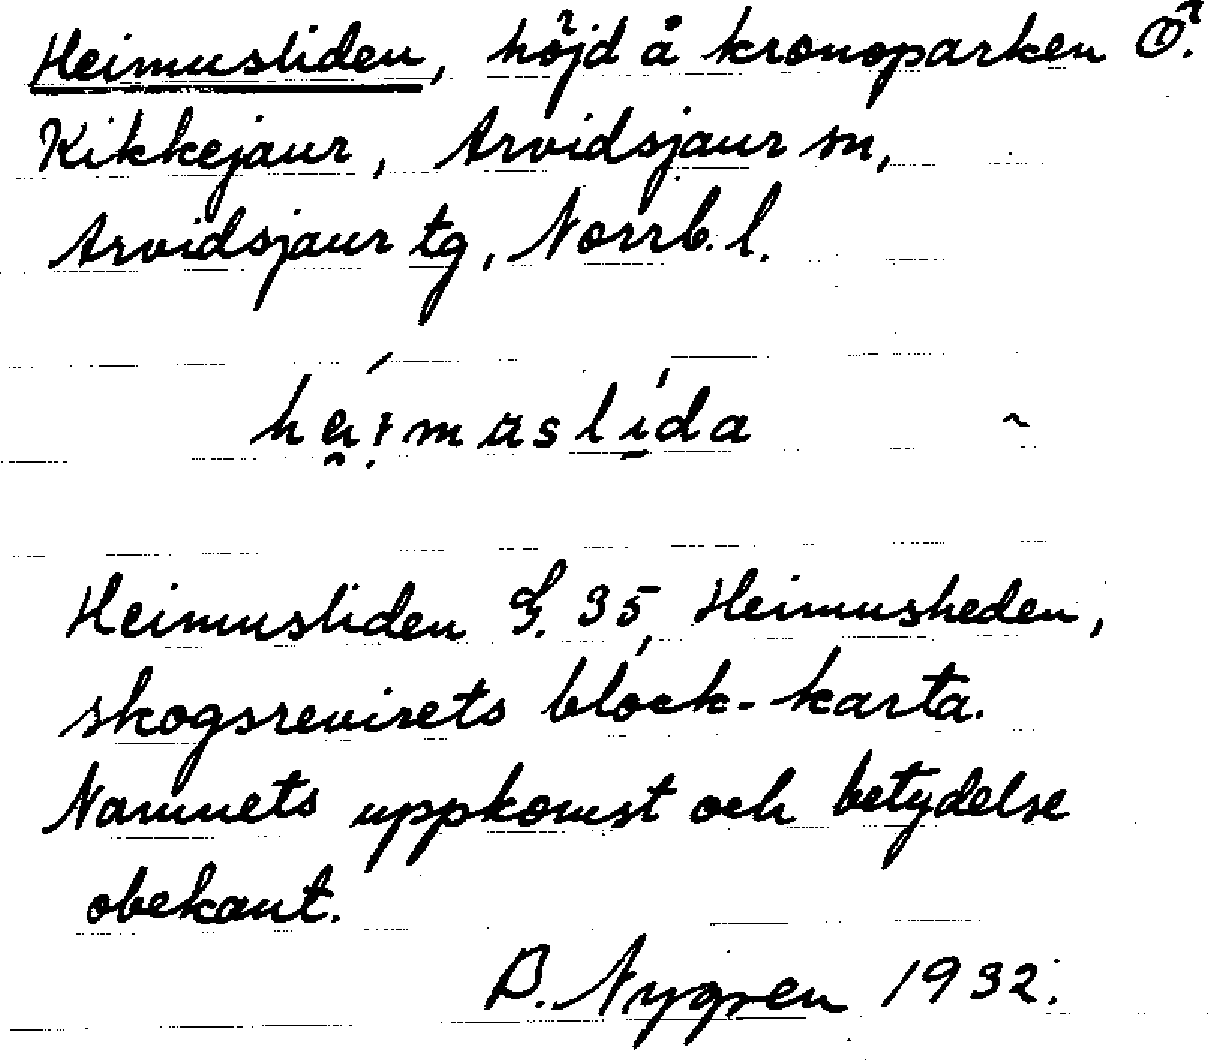 Heimusliden, höjd å kronoparken Ö.
Kikkejaur, Arvidsjaur sn,
Arvidsjaur tg, Norrb. l.
Heimusliden G. 35, Heimusheden,
skogsrevirets block-karta.
Namnets uppkomst och betydelse
obekant.
B. Nygren 1932.